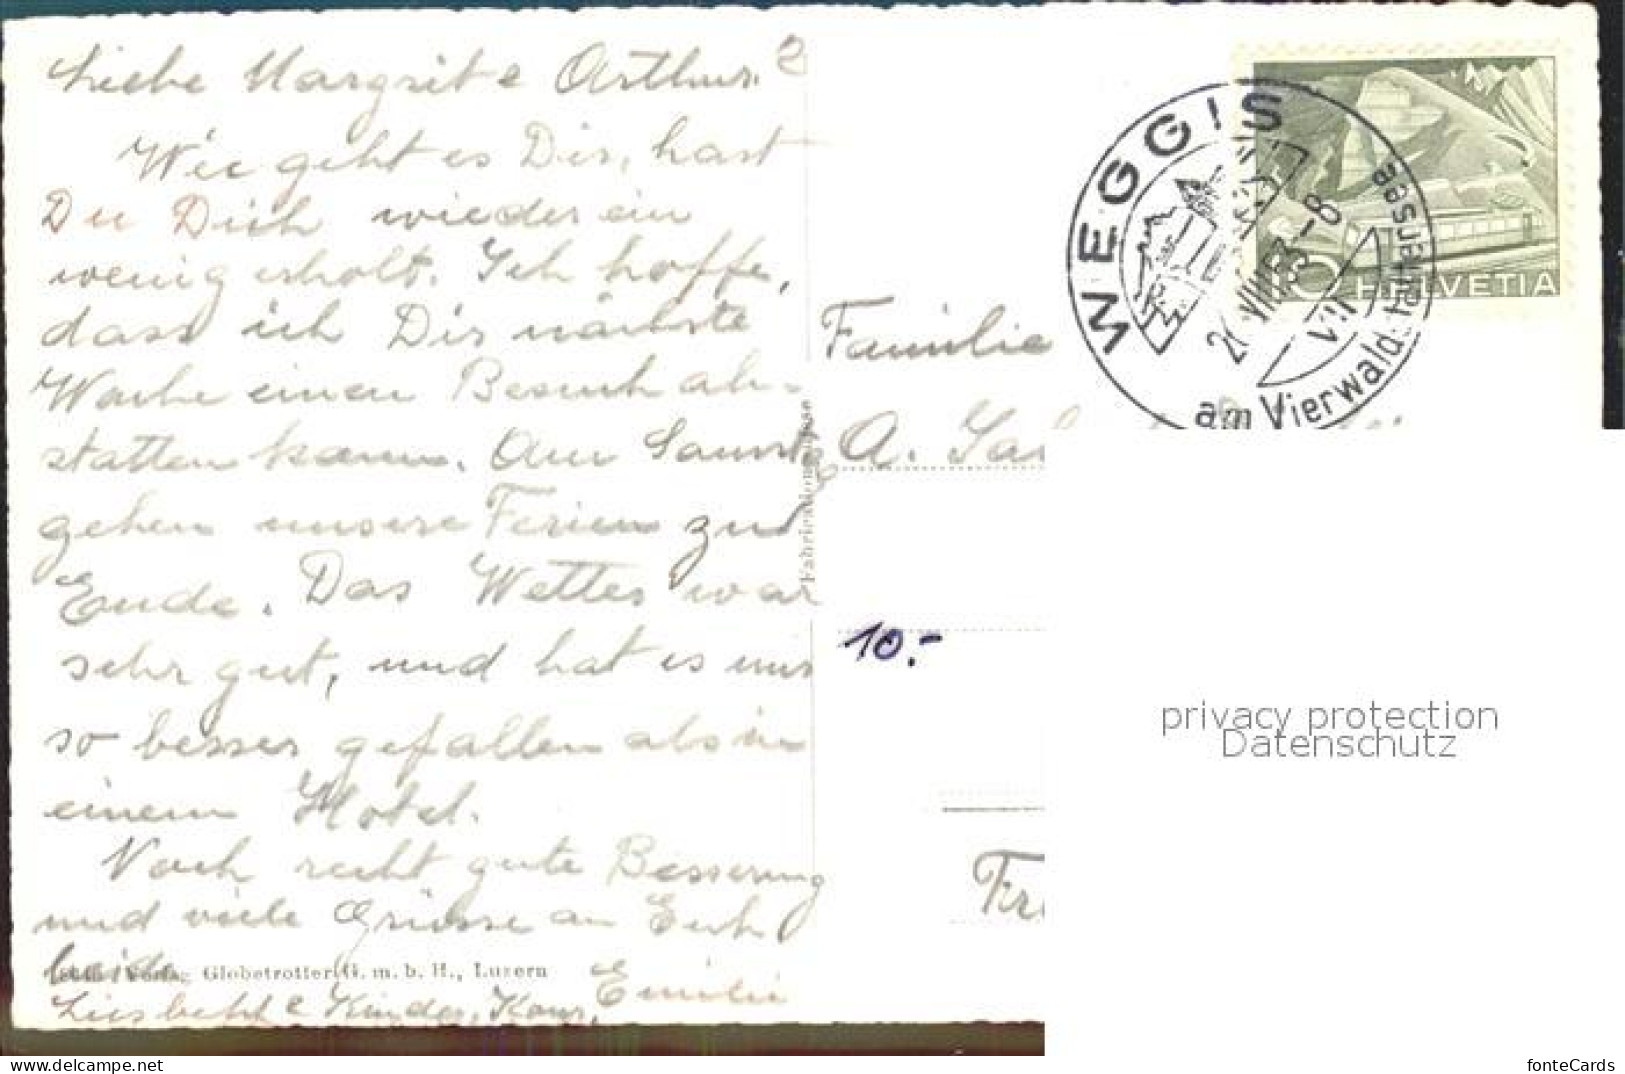 Liebe Margrit & Arthur.
Wie geht es Dir, hast
Du Dich wieder ein
wenig erholt. Ich hoffe,
dass ich Dir nächste
Woche einen Besuch ab-
statten kann. Am Samstg
gehen unsere Ferien zu
Ende. Das Wetter war
sehr gut, und hat es uns
so besser gefallen als in
einem Hotel.
Noch recht gute Besserung
und viele Grüsse an Euch
beide Emilie
Liesbeth & Kinder,
Verlag Globetrotter G. m. b. H., Luzern
WEGGIS
am Vierwald
HELVETIA
10
Familie
A.
10.-
Fr
privacy protection
Datenschutz
fonteCards
delcampe.net